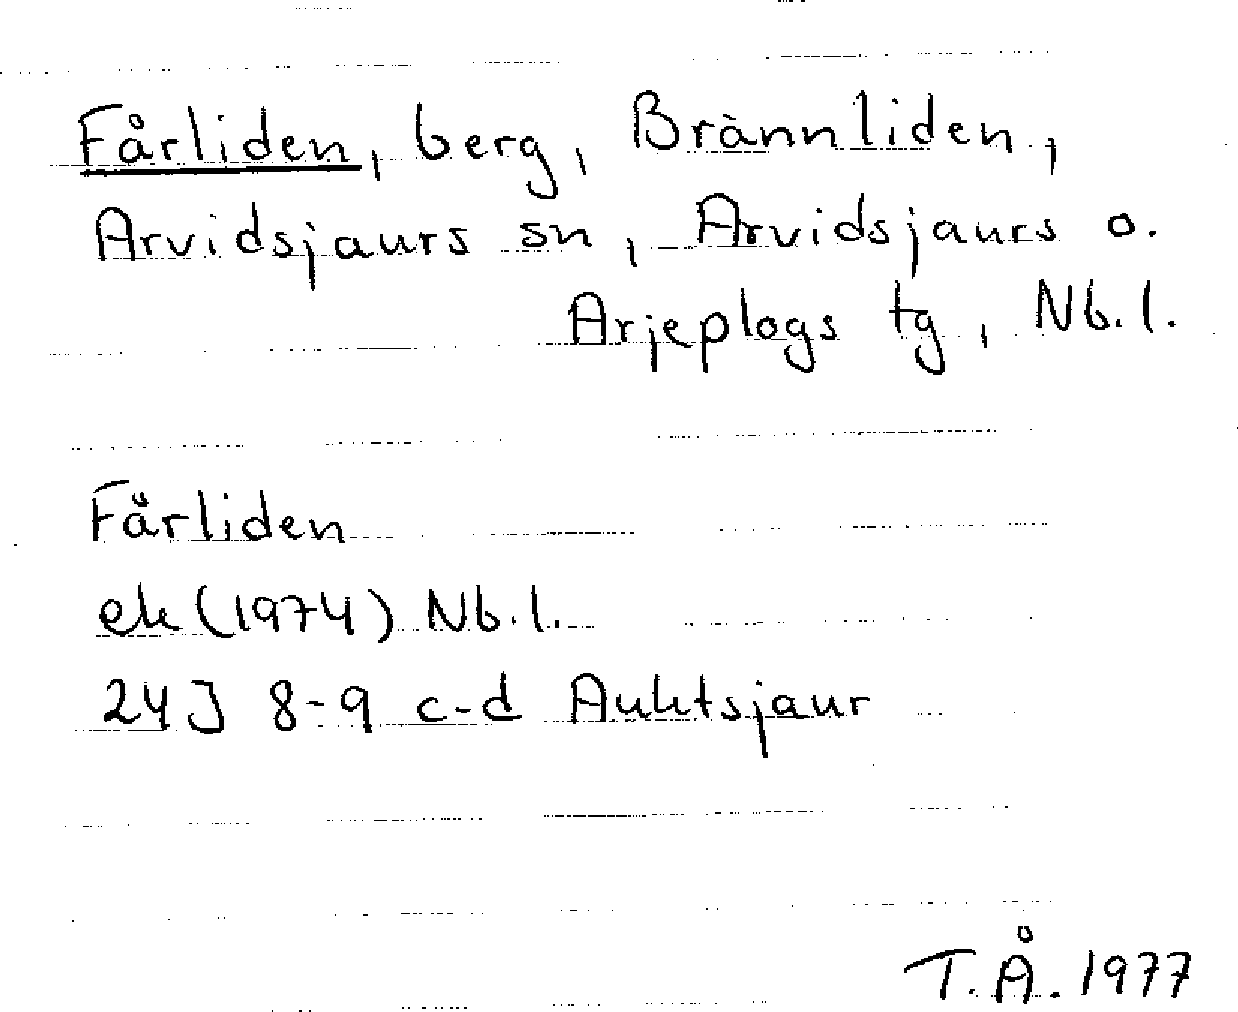 Fårliden, berg, Brännliden,
Arvidsjaurs sn, Arvidsjaurs o.
Arjeplogs tg, Nb.l.
Fårliden
ek (1974) Nb.l.
24J 8-9 c-d Auktsjaur
T.Å. 1977